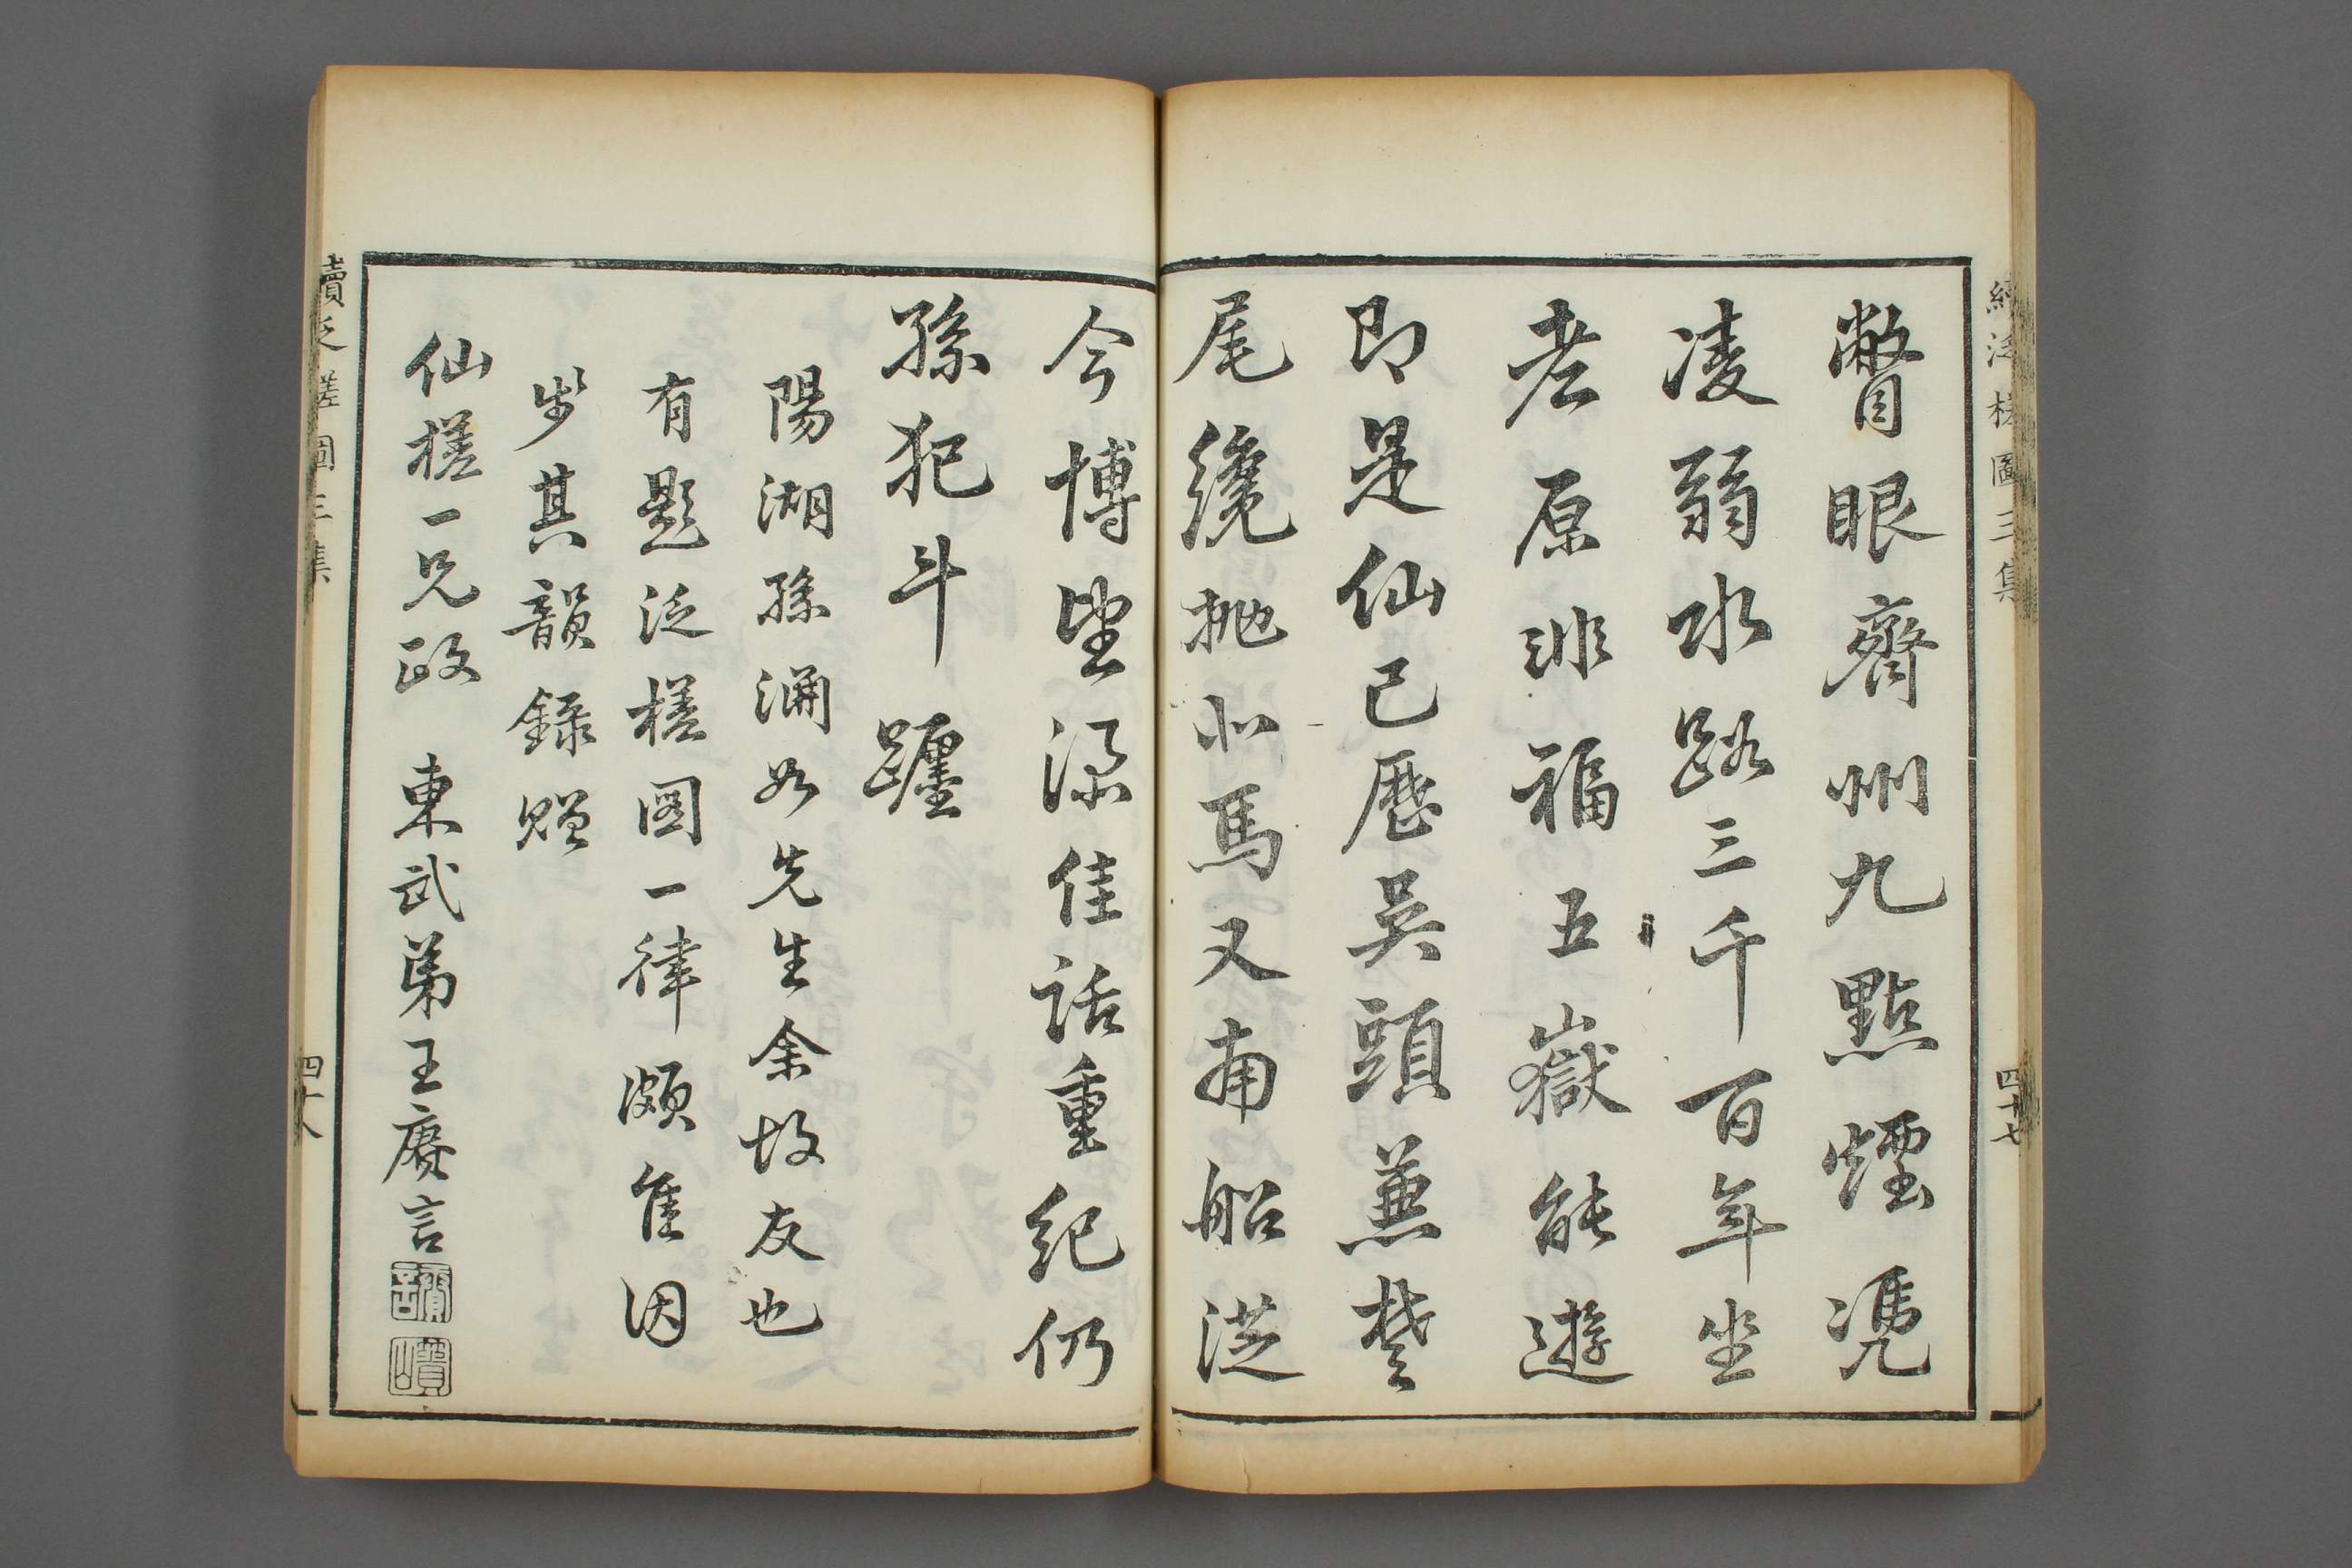 續泛槎圖三集
四十七
瞥眼齊州九點煙憑
凌弱水路三千百年坐
老原非福五嶽能遊
即是仙已歷吳頭兼楚
尾纔拋北馬又南船從
今博望添佳話重紀仍
孫犯斗躔
陽湖孫淵如先生余故友也
有題泛槎圖一律頗佳因
步其韻錄贈
仙槎一兄政 東武弟王賡言
續泛槎圖三集
四十八